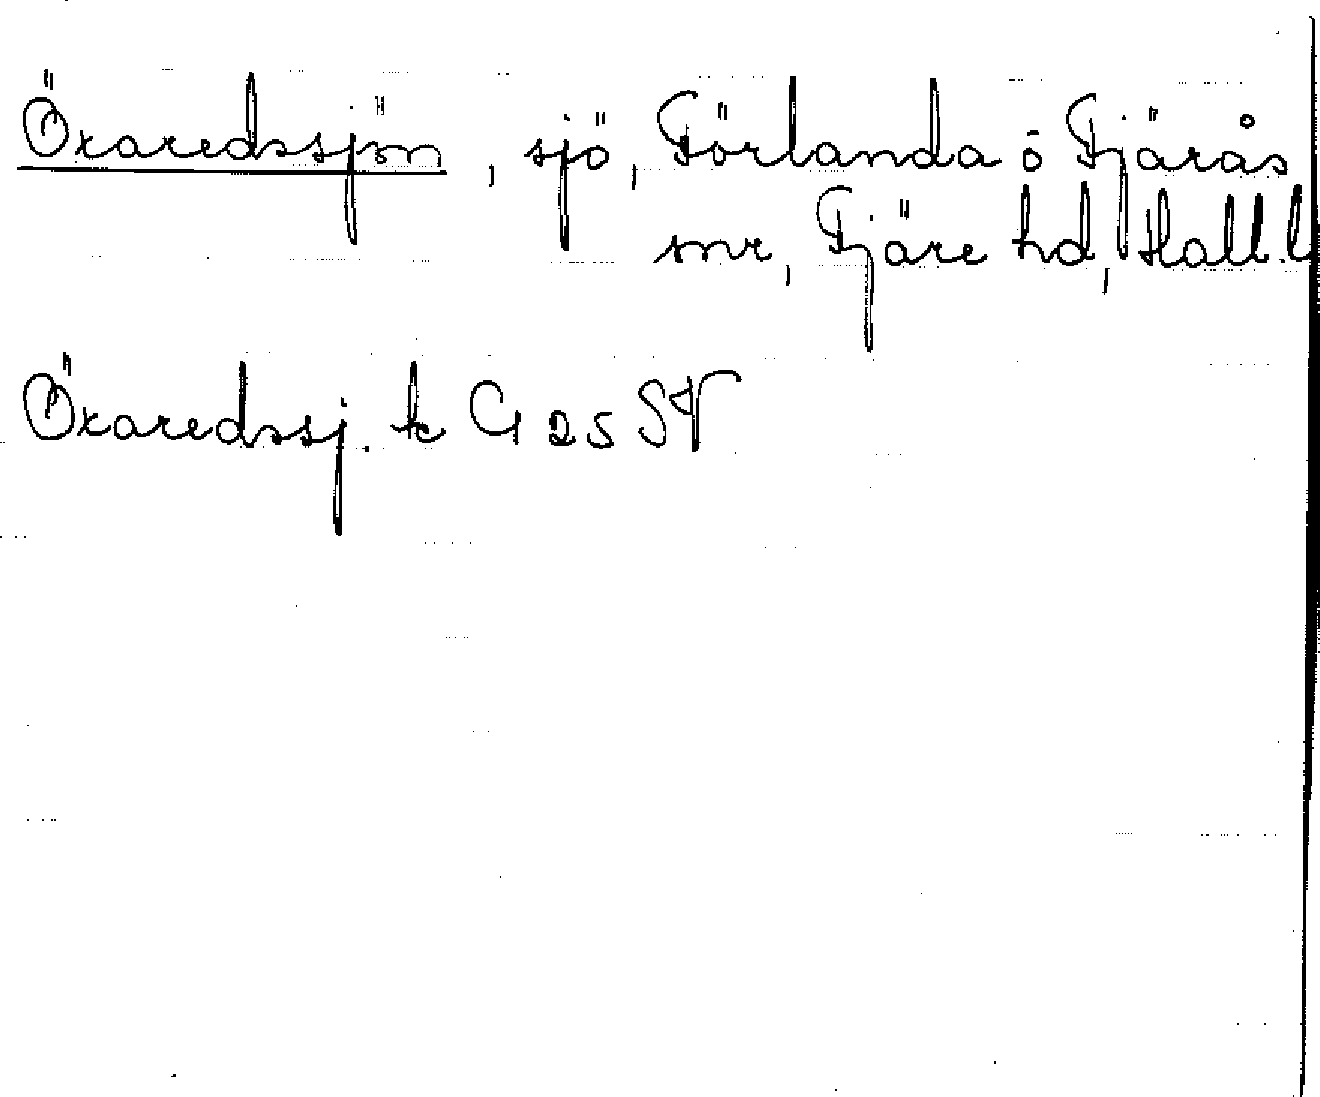 Öxaredssjön, sjö, Förlanda o Fjärås
snr, Fjäre hd, Hall. l
Öxaredssj. k G 25 SV